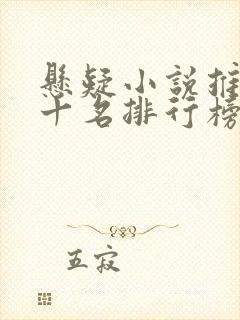 懸疑小說推
十名排行榜
五寂